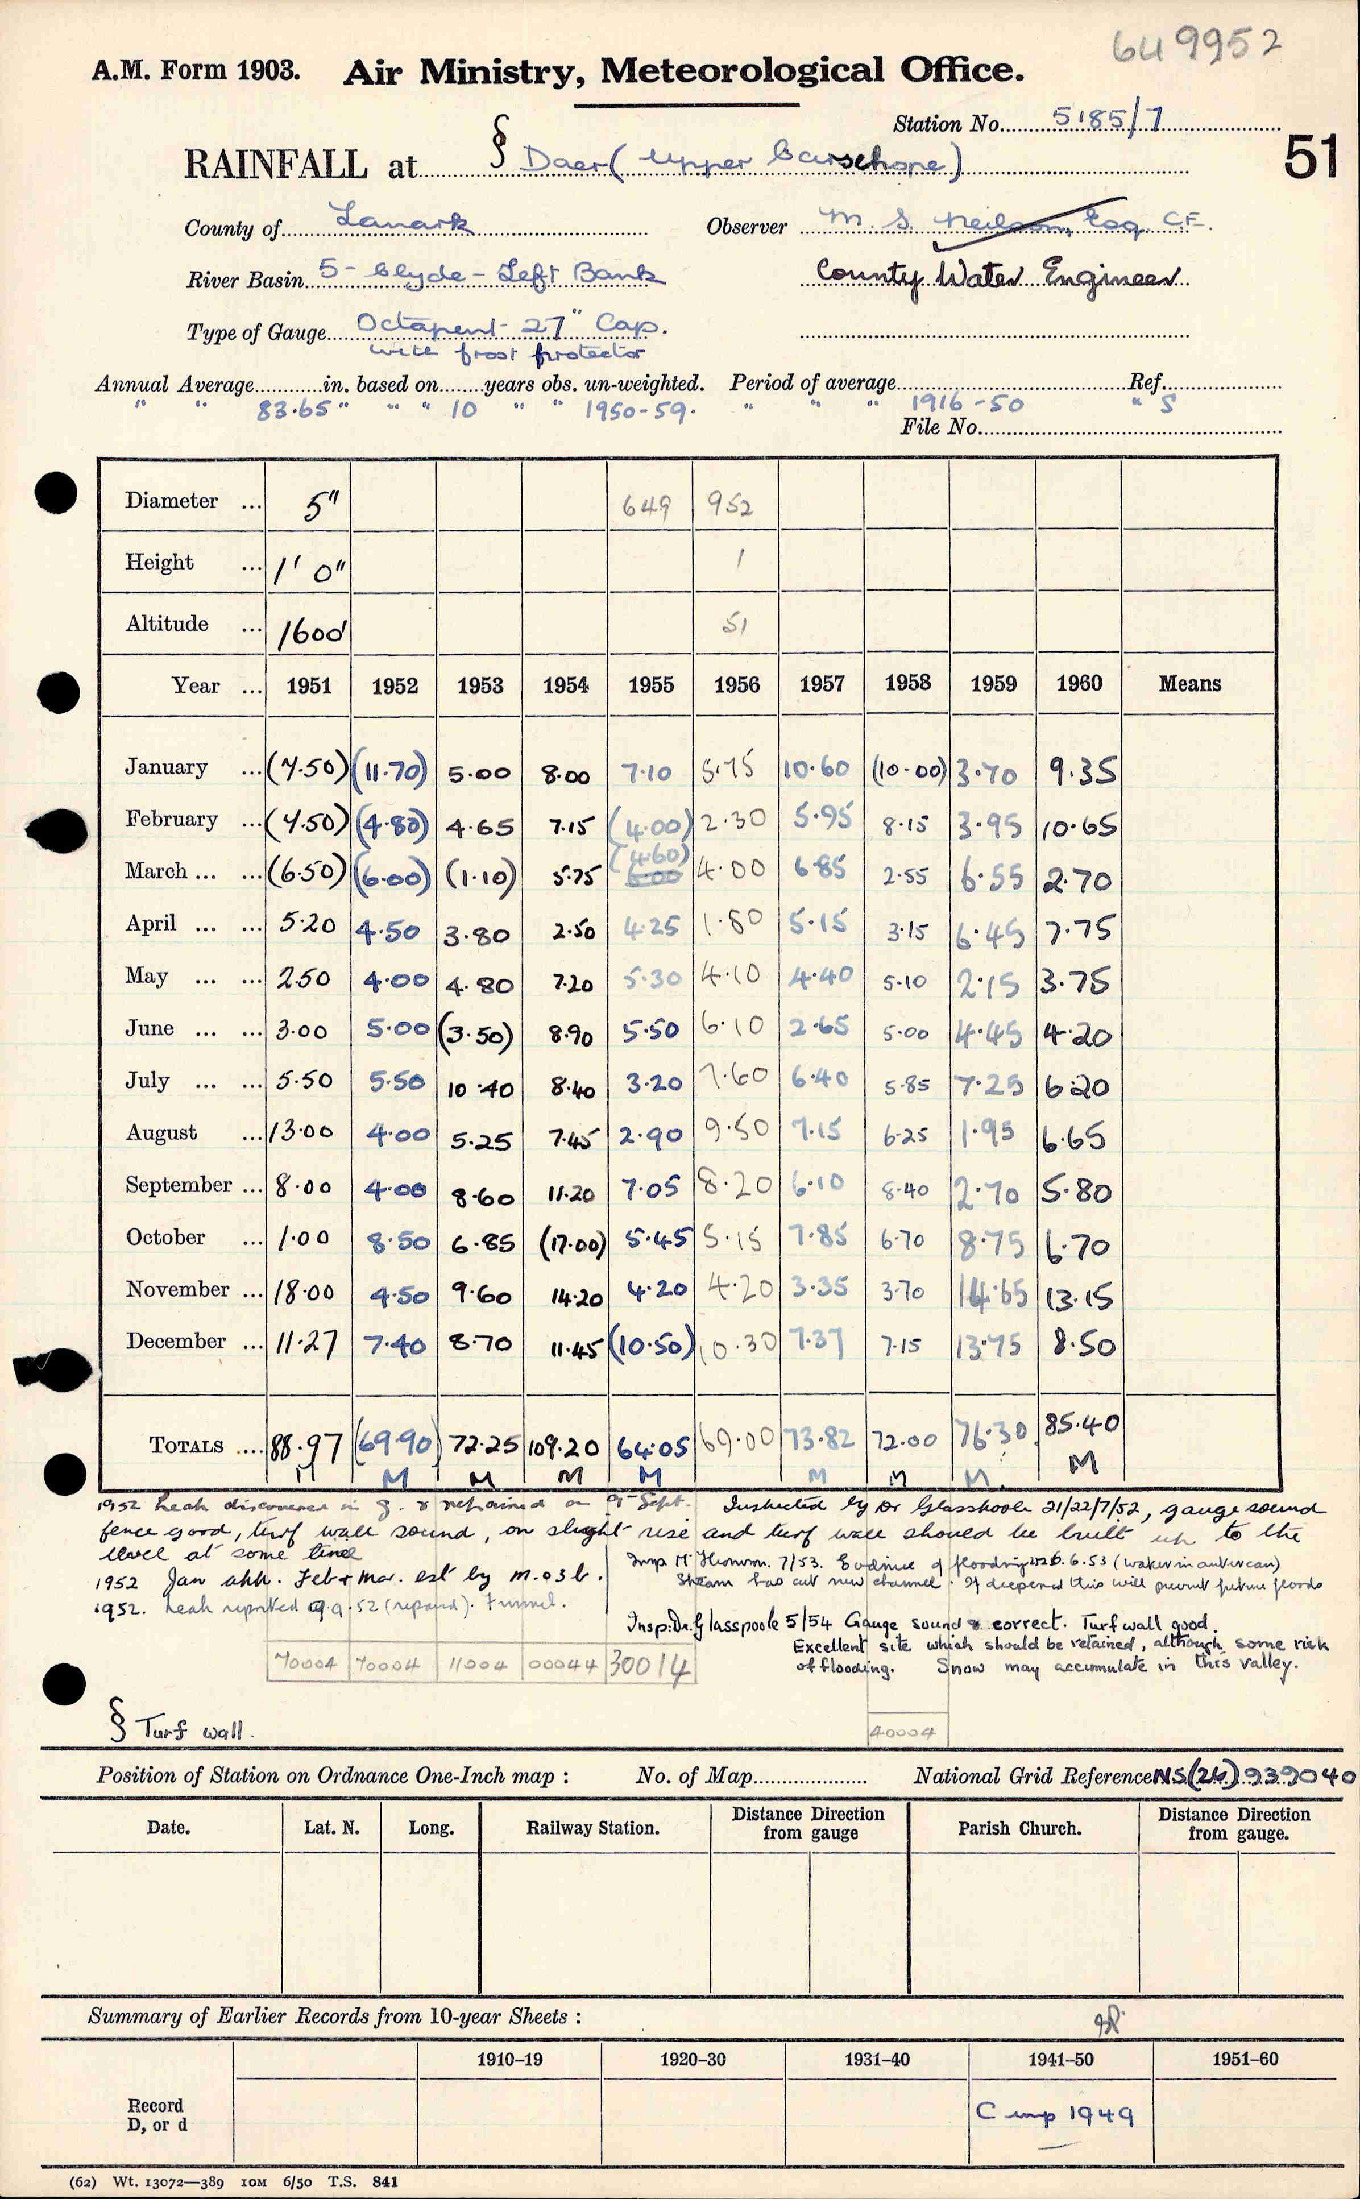 649952
A.M. Form 1903. Air Ministry, Meteorological Office.
Station No. 5185/7
51
RAINFALL at § Daer (Upper Carsehope)
County of Lanark Observer M. S. Neilson, Esq. C.E.
River Basin 5 - Clyde - Left Bank County Water Engineer
Type of Gauge Octapent 27" Cap.
with frost protector
Annual Average in. based on years obs. un-weighted. Period of average Ref.
" " 83.65" " " 10 " " 1950-59. " " " 1916-50 " S
File No.
Diameter ... 5" 649 952
Height ... 1' 0" 1
Altitude ... 1600 51
Year ... 1951 1952 1953 1954 1955 1956 1957 1958 1959 1960 Means
January ... (7.50) (11.70) 5.00 8.00 7.10 5.75 10.60 (10.00) 3.70 9.35
February ... (7.50) (4.80) 4.65 7.15 (4.00) 2.30 5.95 8.15 3.95 10.65
March ... ... (6.50) (6.00) (1.10) 5.75 (4.60) 4.00 6.85 2.55 6.55 2.70
April ... ... 5.20 4.50 3.80 2.50 4.25 1.80 5.15 3.15 6.45 7.75
May ... ... 2.50 4.00 4.80 7.20 5.30 4.10 4.40 5.10 2.15 3.75
June ... ... 3.00 5.00 (3.50) 8.90 5.50 6.10 2.65 5.00 4.45 4.20
July ... ... 5.50 5.50 10.40 8.40 3.20 7.60 6.40 5.85 7.25 6.20
August ... 13.00 4.00 5.25 7.45 2.90 9.50 7.15 6.25 1.95 6.65
September ... 8.00 4.00 8.60 11.20 7.05 8.20 6.10 8.40 2.70 5.80
October ... 1.00 8.50 6.85 (17.00) 5.45 5.15 7.85 6.70 8.75 6.70
November ... 18.00 4.50 9.60 14.20 4.20 4.20 3.35 3.70 14.65 13.15
December ... 11.27 7.40 8.70 11.45 (10.50) 10.30 7.37 7.15 13.75 8.50
TOTALS .... 88.97 (69.90) 72.25 109.20 64.05 69.00 73.82 72.00 76.30 85.40
M M M M M M M M M
1952 Leak discovered in g. & repaired on 9th Sept. Inspected by Dr Glasspoole 21/22/7/52, gauge sound
fence good, turf wall sound, on slight rise and turf wall should be built up to the
level at some time
1952 Jan Feb & Mar. est by m.o3b.
1952. Leak reported 9.9.52 (repaired). Funnel.
Insp Mr 7/53. Evidence of flooding 6.53 (water in outer can)
Stream has cut new channel. If deepened this will prevent future floods
Insp: Dr. Glasspoole 5/54 Gauge sound & correct. Turf wall good.
Excellent site which should be retained, although some risk
of flooding. Snow may accumulate in this valley.
70004 70004 11004 00044 30014
40004
§ Turf wall.
Position of Station on Ordnance One-Inch map : No. of Map National Grid Reference NS(26) 939040
Date. Lat. N. Long. Railway Station. Distance Direction from gauge Parish Church. Distance Direction from gauge.
Summary of Earlier Records from 10-year Sheets :
1910–19 1920–30 1931–40 1941–50 1951–60
Record
D, or d
C inp 1949
(62) Wt. 13072—389 10M 6/50 T.S. 841